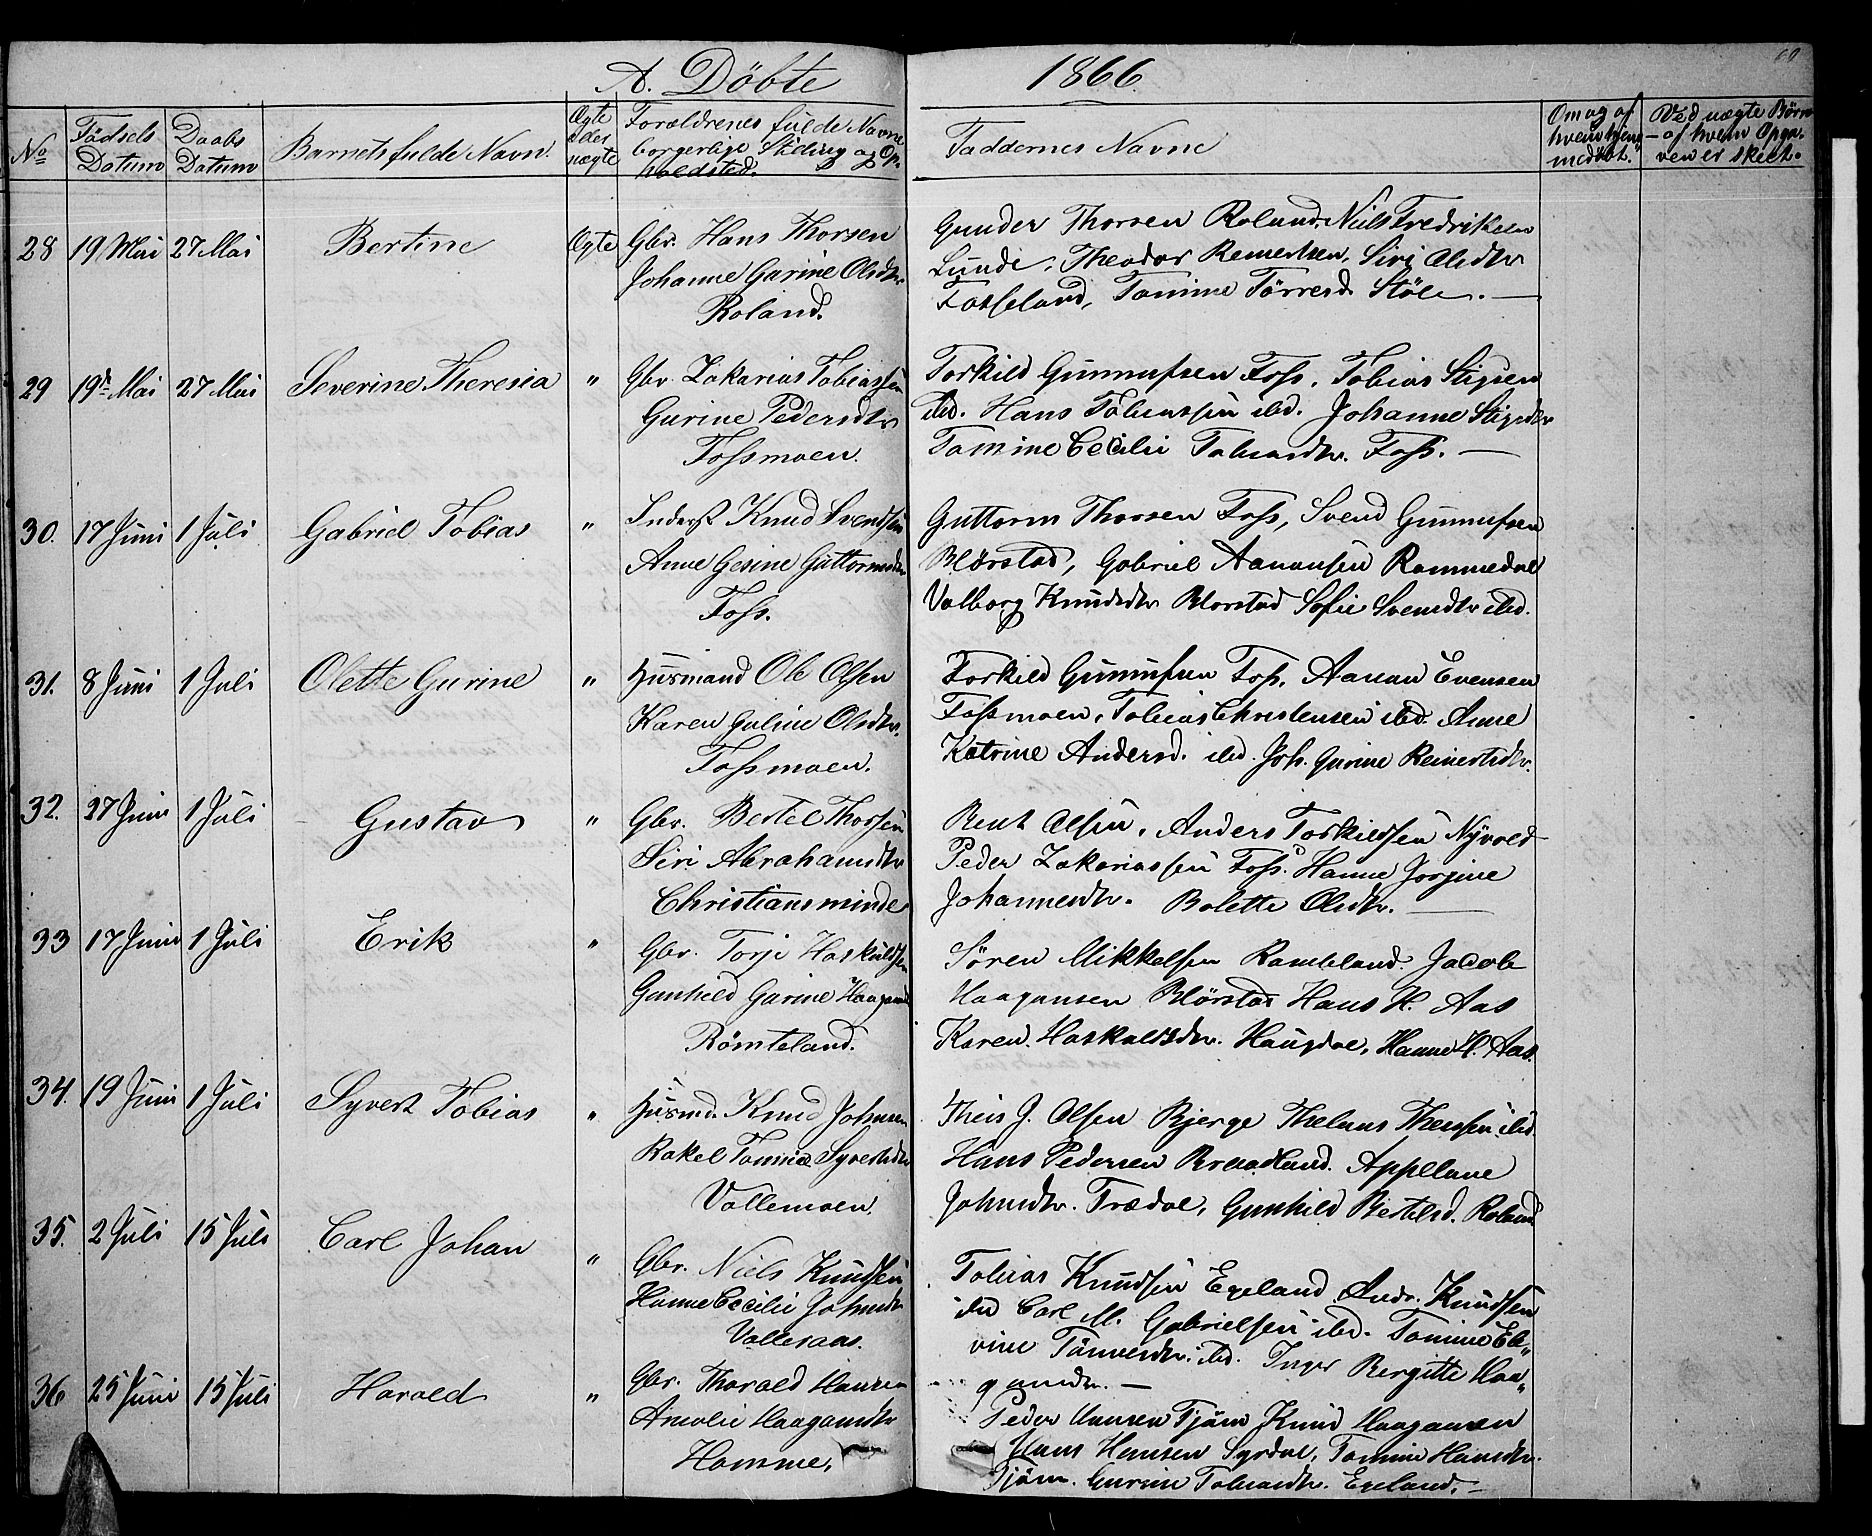 A. Döbte 1866.
No
Födsels Datum
Daabs Datum
Barnets fulde Navn.
Ægte eller uægte
Forældrenes fulde Navne borgerlige Stilling og Opholdsted.
Faddernes Navne
Ved uægte Börn af hvem Opgaven er skeet.
28 19 Mai 27 Mai Bertine Ægte
Gbr. Hans Thorsen
Johanne Gurine Olsdtr
Roland.
Gunder Thorsen Roland, Niels Fredriksen
Lunde, Theodor Reinertsen, Siri Olsdtr
Fosseland, Tomine Törresd. Støle. —
29 19de Mai 27 Mai Severine Theresia "
Gbr. Zakarias Tobiassen
Gurine Pedersdtr
Fossmoen.
Torkild Gunnufsen Foss, Tobias Stigsen
ibd. Hans Tobiassen ibd. Johanne Stigsdtr
Tomine Cecilie Tobiasdtr. Foss. —
30. 17 Juni 1 Juli Gabriel Tobias "
Inderst Knud Svendsen
Anne Gesine Guttormsdtr
Foss.
Guttorm Thorsen Foss, Svend Gunnufsen
Blørstad, Gabriel Aanansen Rommedal
Valborg Knudsdtr Blorstad Sofie Svensdtr ibd.
31. 8 Juni 1 Juli Olette Gurine "
Husmand Ole Olsen
Karen Guline Olsdtr.
Fossmoen.
Torkild Gunnufsen Foss, Aanan Evensen
Fossmoen, Tobias Christensen ibd. Anne
Katrine Andersd. ibd. Joh. Gurine Reinertsdtr.
32. 27 Juni 1 Juli Gustav "
Gbr. Bertel Thorsen
Siri Abrahamsdtr
Christiansminde
Bent Olsen, Anders Torkildsen Nyvold
Peder Zakariassen Foss. Hanne Jorgine
Johannesdtr. Bolette Olsdtr. —
33 17 Juni 1 Juli Erik "
Gbr. Torje Haskuldsen
Gunhild Gurine Haagansd
Römteland.
Søren Mikkelsen Rambland. Jacob
Haagansen Blörstad Hans H. Aas
Karen Haskuldsdtr. Haugdal, Hanne H. Aas.
34. 19 Juni 1 Juli Syvert Tobias "
Husmd. Knud Johnsen
Rakel Tomine Syvertsdtr
Vallemoen.
Theis J. Olsen Bjerge Thelaus Theissen ibd.
Hans Pedersen Appelane
Johnsdtr. Trædal, Gunhild Bertelsd. Roland
35. 2 Juli 15 Juli Carl Johan "
Gbr. Niels Knudsen
Hanne Cecilie Johnsdtr
Valleraas.
Tobias Knudsen Egeland, Andr. Knudsen
ibd Carl M. Gabrielsen ibd. Tomine El„
vine Tönnesdtr. ibd. Inger Bergitte Haa„
gansdtr. —
36 25 Juni 15 Juli Harald "
Gbr. Thorald Hansen
Amalie Haagansdtr
Homme.
Peder Hansen Tjöm Knud Haagansen
Hans Hansen Syrdal, Tomine Hansdtr.
Tjöm. Gurine Tobiasdtr. Egeland. —